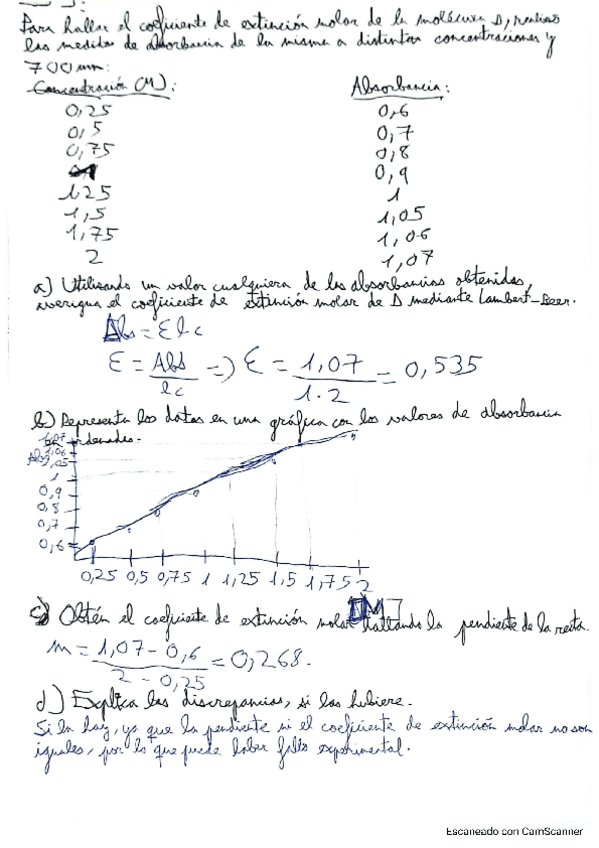 Para hallar el coeficiente de extinción molar de la molécula D, realizas
las medidas de absorbancia de la misma a distintas concentraciones y
700 nm:
Concentración (M): Absorbancia:
0,25 0,6
0,5 0,7
0,75 0,8
0,9
1,25 1
1,5 1,05
1,75 1,06
2 1,07
a) Utilizando un valor cualquiera de las absorbancias obtenidas,
averigua el coeficiente de extinción molar de D mediante Lambert-Beer.
Abs = Ɛ l c
Ɛ = Abs / lc => Ɛ = 1,07 / 1·2 = 0,535
b) Representa los datos en una gráfica con los valores de absorbancia
en ordenadas.
1,07
1,06
Abs 1,05
1
0,9
0,8
0,7
0,6
0,25 0,5 0,75 1 1,25 1,5 1,75 2
[M]
c) Obtén el coeficiente de extinción molar hallando la pendiente de la recta.
m = 1,07 - 0,6 / 2 - 0,25 = 0,268.
d) Explica las discrepancias, si las hubiere.
Si la hay, ya que la pendiente ni el coeficiente de extinción molar no son
iguales, por lo que puede haber fallo experimental.
Escaneado con CamScanner